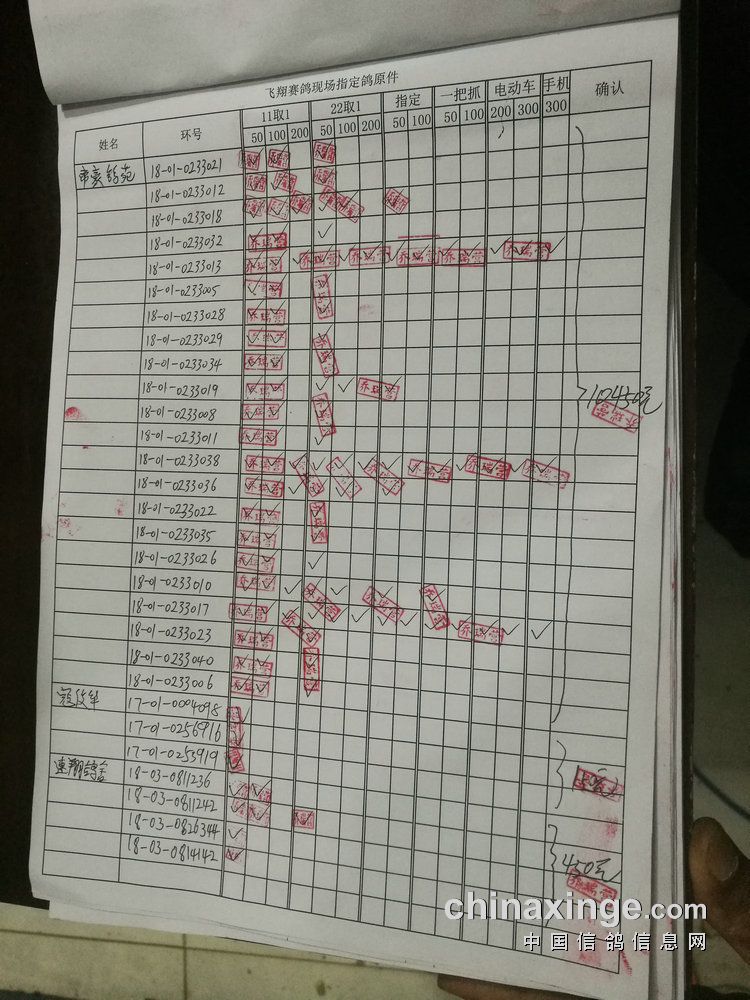 飞翔赛鸽现场指定鸽原件
姓名 环号 11取1 22取1 指定 一把抓 电动车 手机 确认
50 100 200 50 100 200 50 100 50 100 200 300 300
18-01-0233021
18-01-0233012
18-01-0233018
18-01-0233032
18-01-0233013
18-01-0233005
18-01-0233028
18-01-0233029
18-01-0233034
18-01-0233019
18-01-0233008
18-01-0233011
18-01-0233038
18-01-0233036
18-01-0233022
18-01-0233035
18-01-0233026
18-01-0233010
18-01-0233017
18-01-0233023
18-01-0233040
18-01-0233006
17-01-0004098
17-01-0256916
17-01-0253919
18-03-0811236
18-03-0811242
18-03-0826344
18-03-0814142
10450元
450元
乔瑞营
chinaxinge.com
中国信鸽信息网